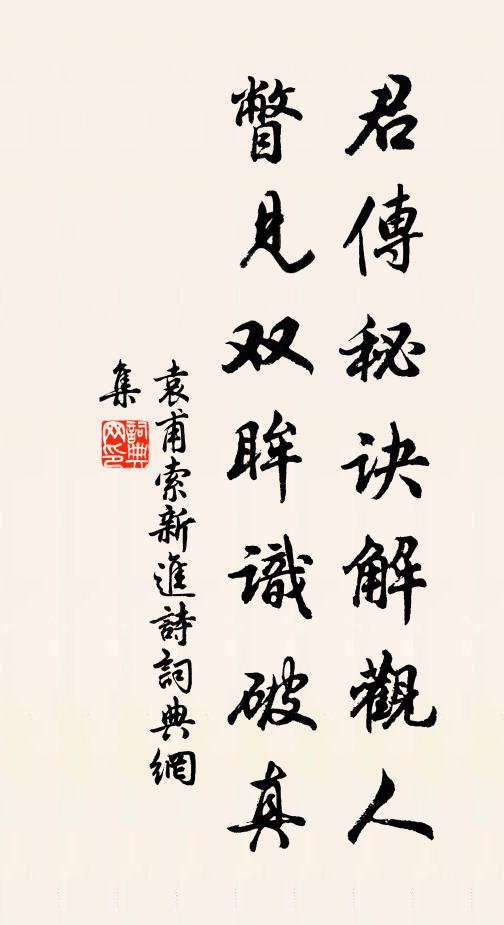 君傳秘訣解觀人
瞥見双眸識破真
袁甫索新進詩詞典網
集
詞典網印